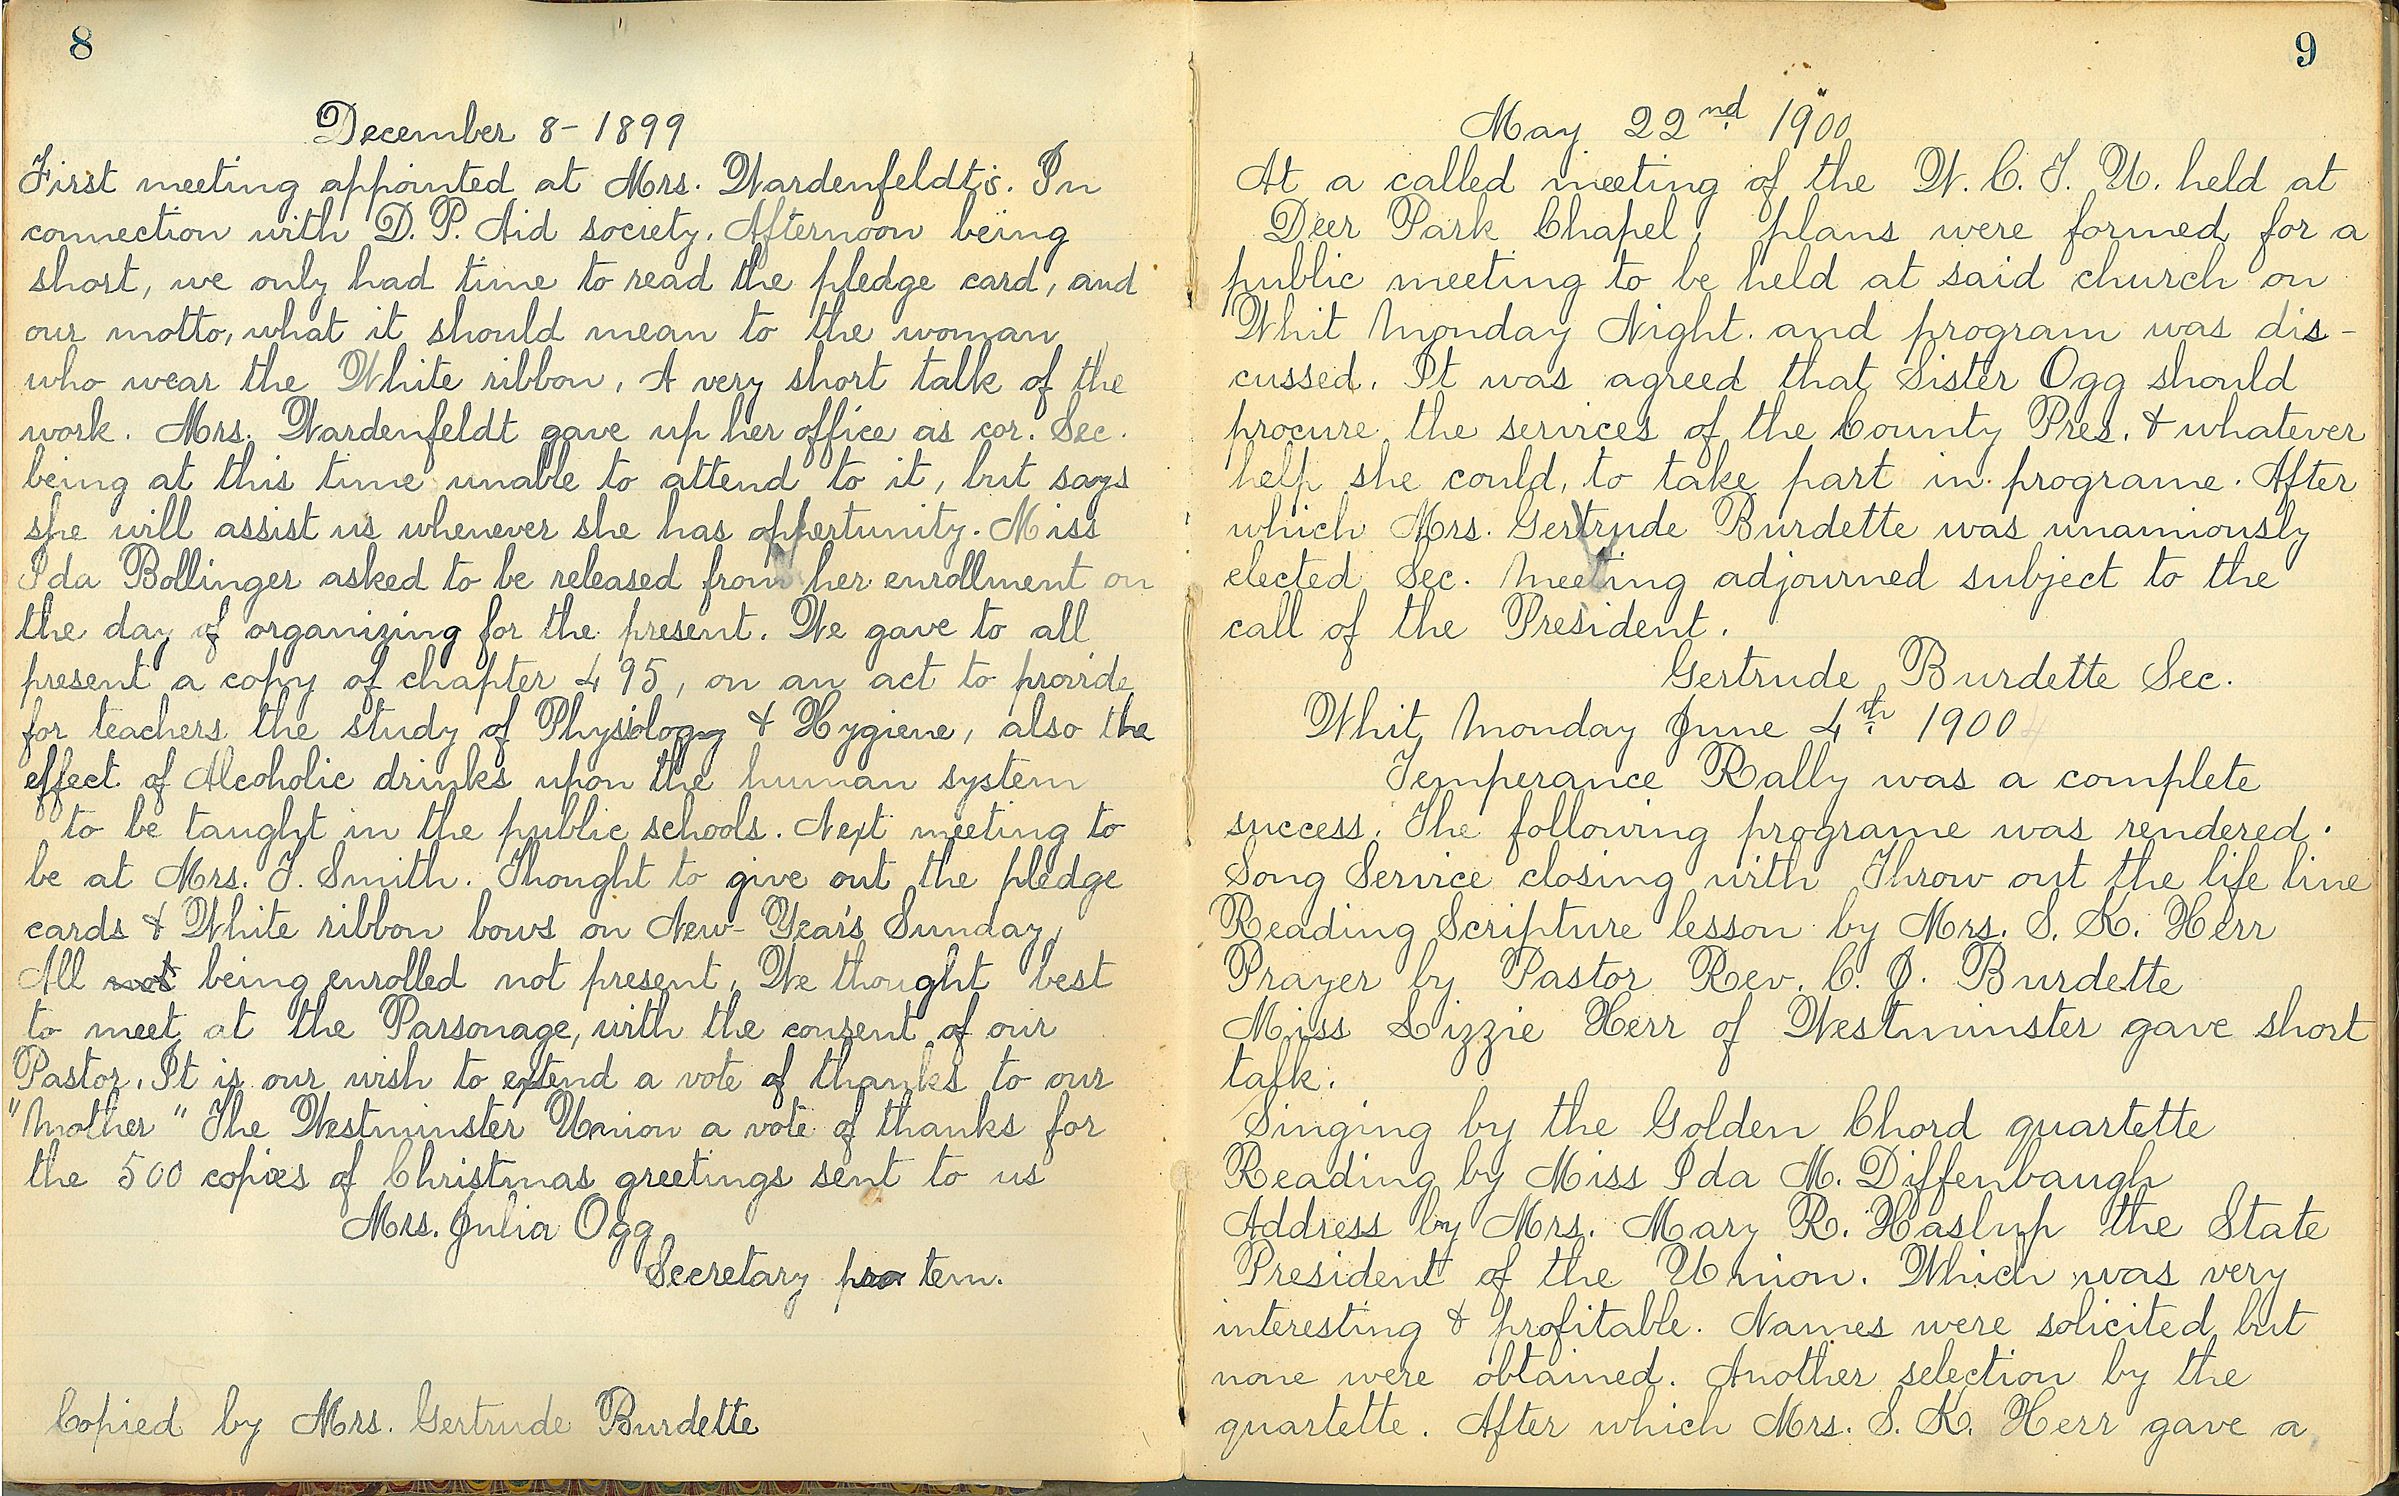 8
December 8 - 1899
First meeting appointed at Mrs. Wardenfeldt's. In
connection with D. P. Aid society. Afternoon being
short, we only had time to read the pledge card, and
our motto, what it should mean to the woman
who wear the White ribbon. A very short talk of the
work. Mrs. Wardenfeldt gave up her office as cor. Sec.
being at this time unable to attend to it, but says
she will assist us whenever she has oppertunity. Miss
Ida Bollinger asked to be released from her enrollment on
the day of organizing for the present. We gave to all
present a copy of chapter 495, on an act to provide
for teachers the study of Physiology & Hygiene, also the
effect of Alcoholic drinks upon the human system
to be taught in the public schools. Next meeting to
be at Mrs. J. Smith. Thought to give out the pledge
cards & White ribbon bows on New-Year's Sunday,
All not being enrolled not present, We thought best
to meet at the Parsonage, with the consent of our
Pastor. It is our wish to extend a vote of thanks to our
"Mother" The Westminster Union a vote of thanks for
the 500 copies of Christmas greetings sent to us
Mrs. Julia Ogg
Secretary pro tem.
Copied by Mrs. Gertrude Burdette
9
May 22nd 1900
At a called meeting of the W. C. T. U. held at
Deer Park Chapel, plans were formed for a
public meeting to be held at said church on
Whit Monday Night. and program was dis-
cussed. It was agreed that Sister Ogg should
procure the services of the County Pres. & whatever
help she could, to take part in programe. After
which Mrs. Gertrude Burdette was unamiously
elected Sec. Meeting adjourned subject to the
call of the President.
Gertrude Burdette Sec.
Whit Monday June 4th 1900
Temperance Rally was a complete
success. The following programe was rendered.
Song Service closing with Throw out the life line
Reading Scripture lesson by Mrs. S. K. Herr
Prayer by Pastor Rev. C. J. Burdette
Miss Lizzie Herr of Westminster gave short
talk.
Singing by the Golden Chord quartette
Reading by Miss Ida M. Diffenbaugh
Address by Mrs. Mary R. Haslup the State
President of the Union. Which was very
interesting & profitable. Names were solicited but
none were obtained. Another selection by the
quartette. After which Mrs. S. K. Herr gave a